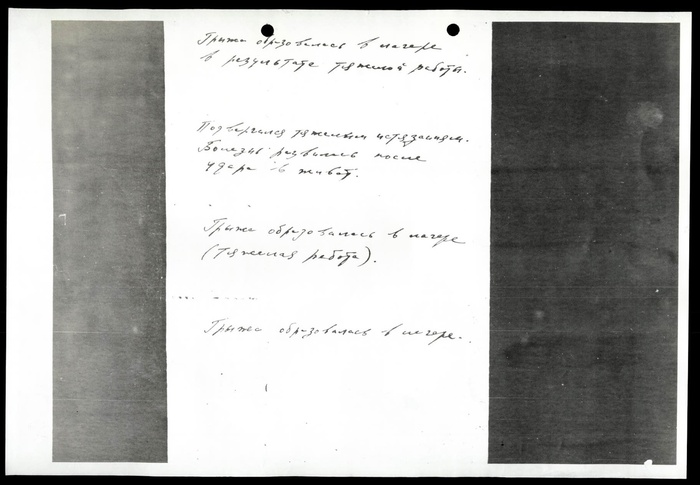 Грыжа образовалась в лагере
в результате тяжелой работы.
Подвергался тяжелым истязаниям.
Болезнь развилась после
удара в живот.
Грыжа образовалась в лагере
(тяжелая работа).
Грыжа образовалась в лагере.